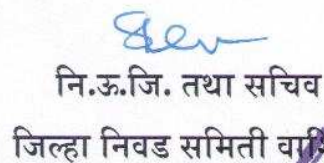 नि.ऊ.जि. तथा सचिव
जिल्हा निवड समिती